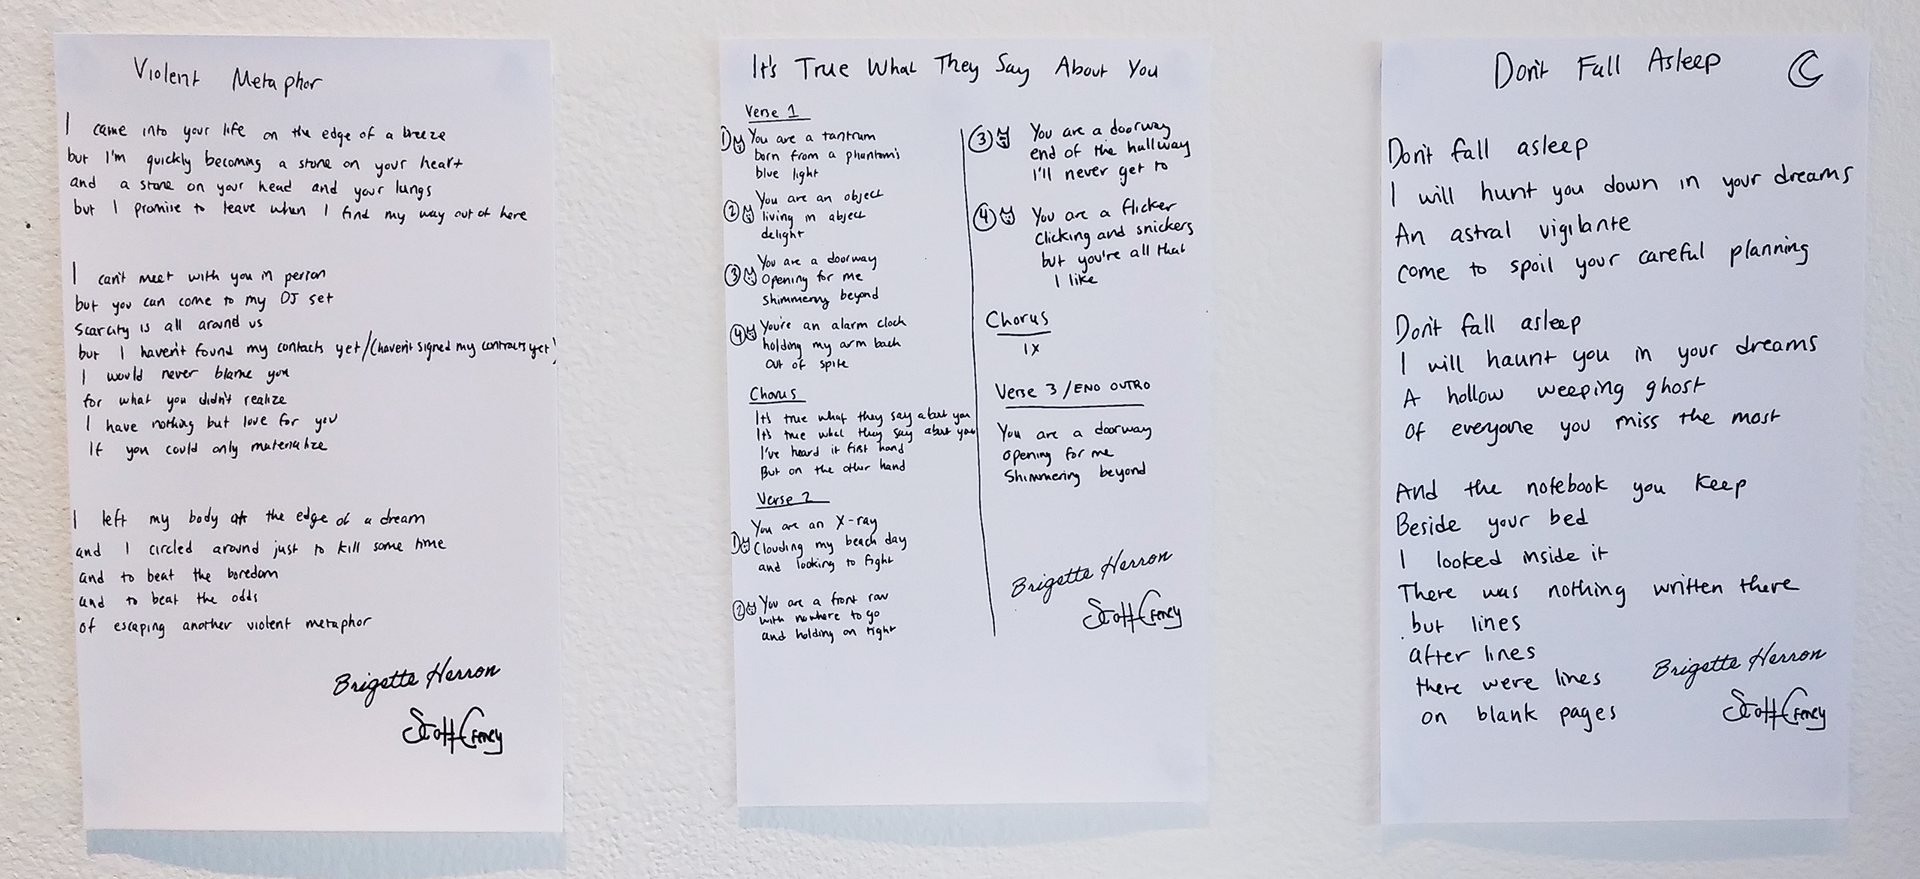 Violent Metaphor
I came into your life on the edge of a breeze
but I'm quickly becoming a stone on your heart
and a stone on your head and your lungs
but I promise to leave when I find my way out of here
I can't meet with you in person
but you can come to my DJ set
Scarcity is all around us
but I haven't found my contacts yet/(haven't signed my contracts yet)
I would never blame you
for what you didn't realize
I have nothing but love for you
If you could only materialize
I left my body at the edge of a dream
and I circled around just to kill some time
and to beat the boredom
and to beat the odds
of escaping another violent metaphor
Brigette Herron
Scott Creney
It's True What They Say About You
Verse 1
① You are a tantrum
born from a phantom's
blue light
② You are an object
living in abject
delight
③ You are a doorway
Opening for me
Shimmering beyond
④ You're an alarm clock
holding my arm back
out of spite
Chorus
It's true what they say about you
It's true what they say about you
I've heard it first hand
But on the other hand
Verse 2
① You are an X-ray
Clouding my beach day
and looking to fight
② You are a front row
with nowhere to go
and holding on tight
③ You are a doorway
end of the hallway
I'll never get to
④ You are a flicker
clicking and snickers
but you're all that
I like
Chorus
1X
Verse 3 /END OUTRO
You are a doorway
opening for me
Shimmering beyond
Brigette Herron
Scott Creney
Don't Fall Asleep
Don't fall asleep
I will hunt you down in your dreams
An astral vigilante
Come to spoil your careful planning
Don't fall asleep
I will haunt you in your dreams
A hollow weeping ghost
Of everyone you miss the most
And the notebook you keep
Beside your bed
I looked inside it
There was nothing written there
but lines
after lines
there were lines
on blank pages
Brigette Herron
Scott Creney